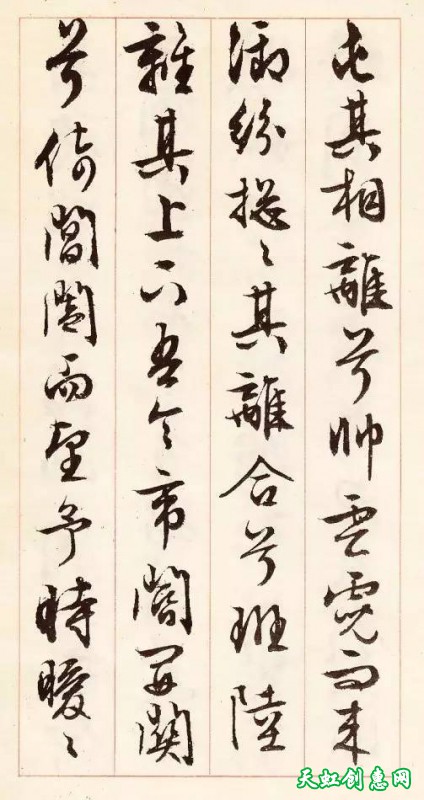 屯其相離兮帥雲霓而來
御紛揔〻其離合兮班陸
離其上下吾令帝閽開關
兮倚閶闔而望予時曖〻
天虹创惠网